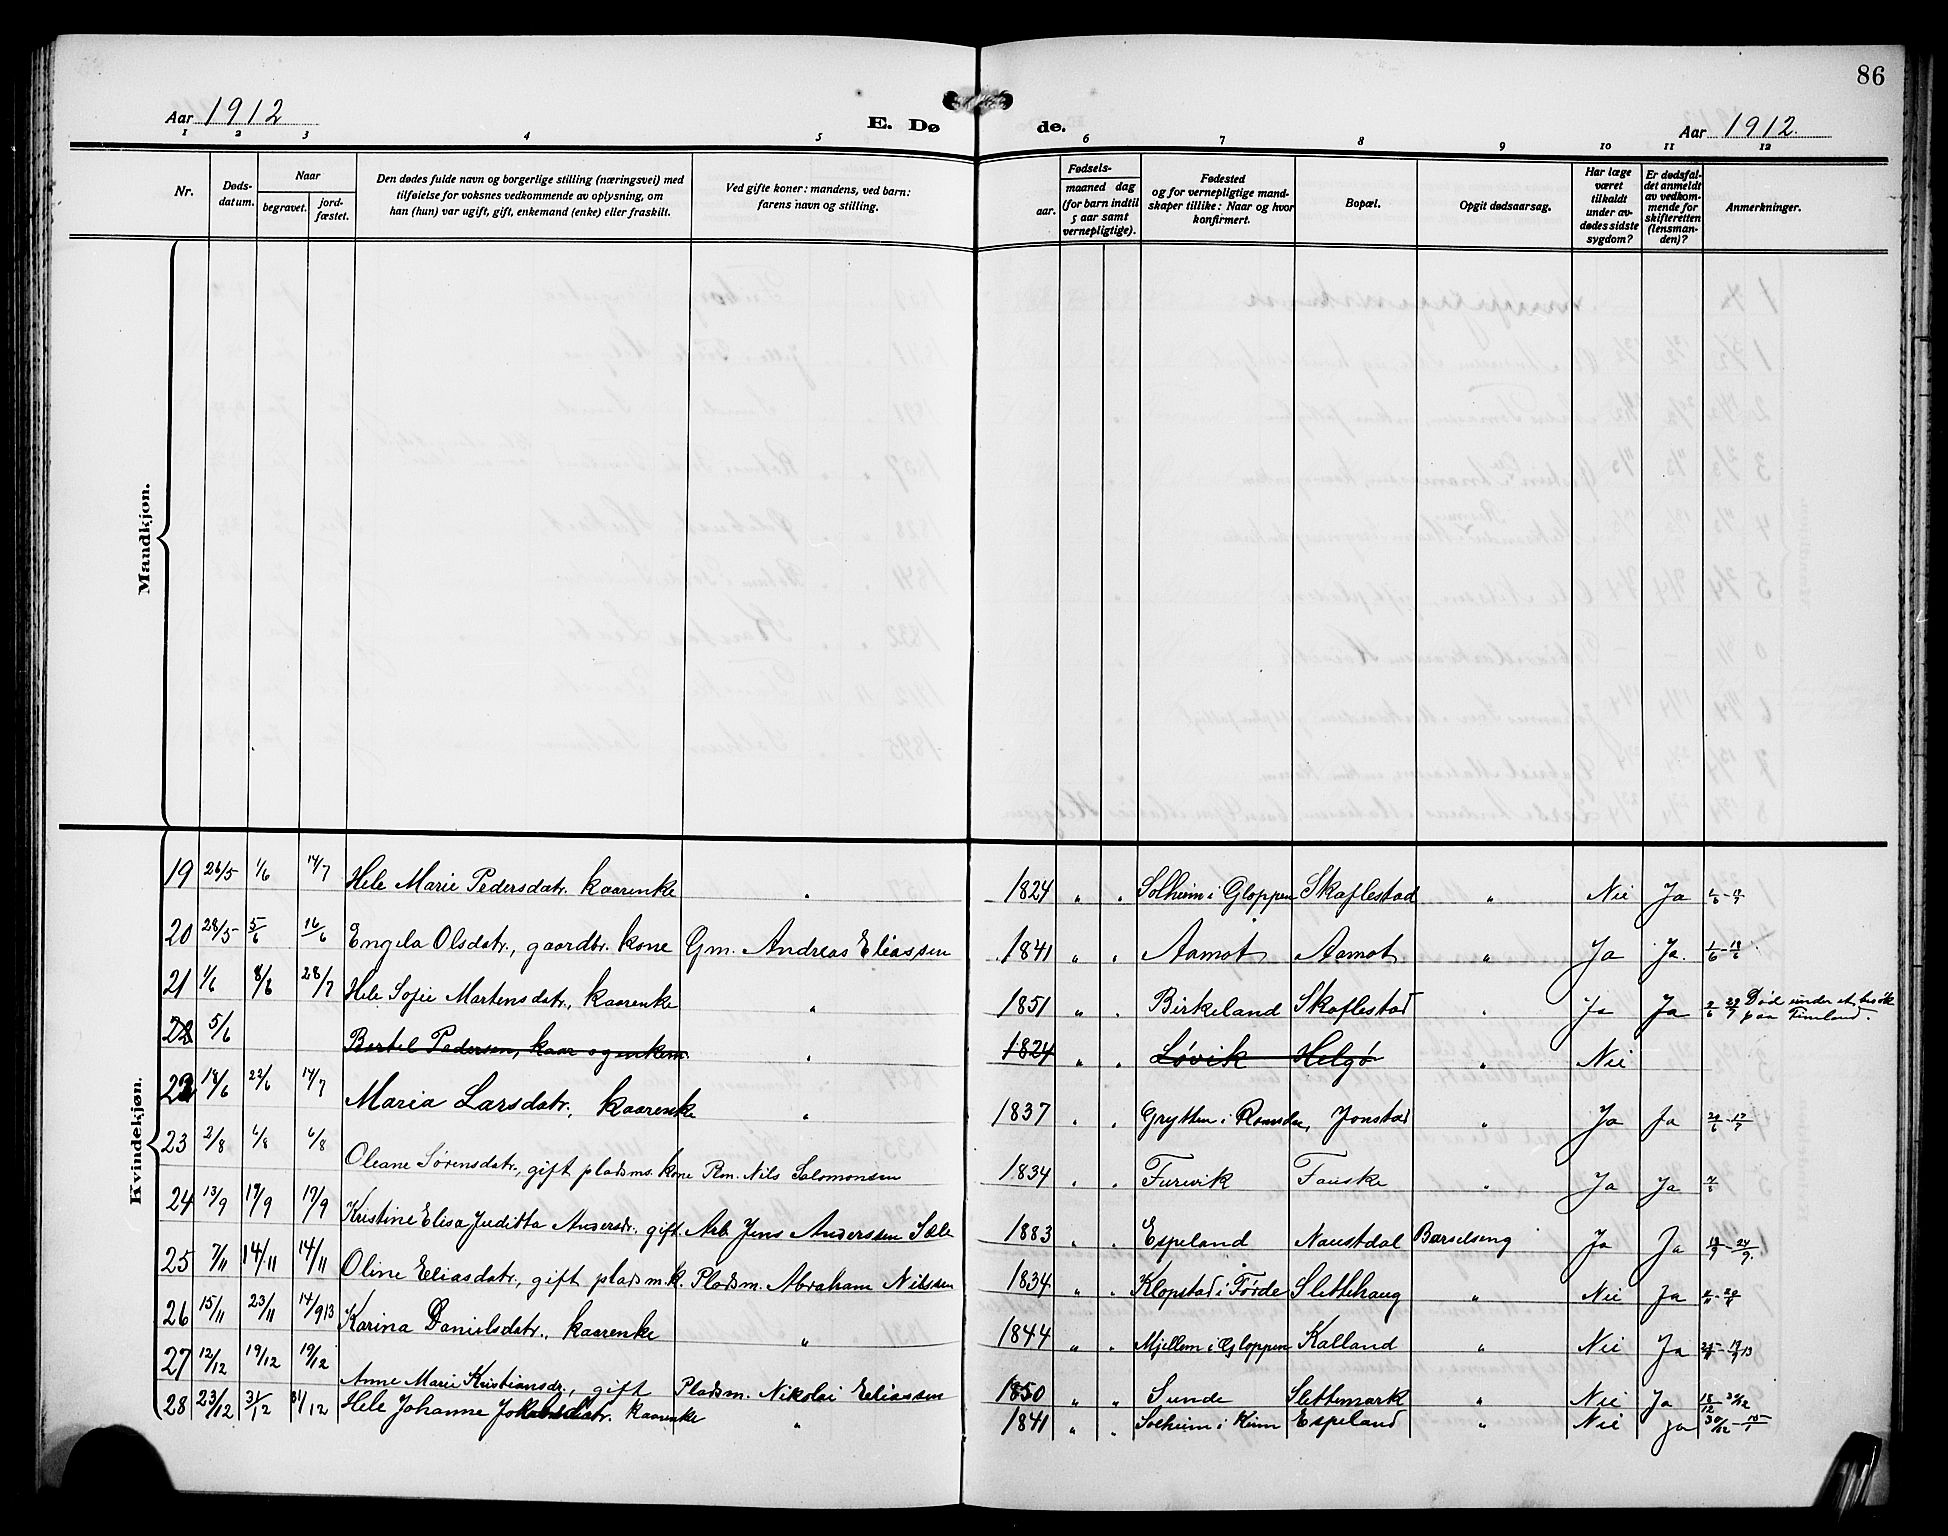 86
Aar 1912
E. Dø de.
Aar 1912.
1 2 3 4 5 6 7 8 9 10 11 12
Nr.
Døds-
datum.
Naar
begravet.
jord-
fæstet.
Den dødes fulde navn og borgerlige stilling (næringsvei) med
tilføielse for voksnes vedkommende av oplysning, om
han (hun) var ugift, gift, enkemand (enke) eller fraskilt.
Ved gifte koner: mandens, ved barn:
farens navn og stilling.
Fødsels-
aar.
maaned dag
(for barn indtil
5 aar samt
vernepligtige).
Fødested
og for vernepligtige mand-
skaper tillike: Naar og hvor
konfirmert.
Bopæl.
Opgit dødsaarsag.
Har læge
været
tilkaldt
under av-
dødes sidste
sygdom?
Er dødsfal-
det anmeldt
av vedkom-
mende for
skifteretten
(lensman-
den)?
Anmerkninger.
Mandkjøn.
Kvindekjøn.
19 26/5 1/6 14/7 Hele Marie Pedersdatr. kaarenke " 1824 " " Solheim i Gloppen Skaflestad " Nei Ja
20 28/5 5/6 16/6 Engela Olsdatr., gaardbr. kone Gm. Andreas Eliassen 1841 " " Aamot Aamot " Ja Ja. 1/6 - 18/6
21 1/6 8/6 28/7 Hele Sofie Martensdatr., kaarenke " 1851 " " Birkeland Skaflestad " Ja Ja Død under et besøk
paa Fimland.
22 5/6 Bertel Pedersen, kaar og enkem. " 1824 " " Løvik Helgø " Nei
22 18/6 22/6 14/7 Maria Larsdatr., kaarenke " 1837 " " Grytten i Romsda, Jonstad " Ja Ja
23 2/8 6/8 6/8 Oleane Sørensdatr., gift pladsms. kone Pm. Nils Salomonsen 1834 " " Furevik Fauske " Ja Ja
24 13/9 19/9 19/9 Kristine Elisa Juditta Andersdr. gift. Arb Jens Anderssen Sæle 1883 " " Espeland Naustdal Barselseng Ja Ja
25 7/11 14/11 14/11 Oline Eliasdatr., gift pladsm.k. Pladsm. Abraham Nilssen 1834 " " Klopstad i Førde Slettehaug " Nei Ja
26 15/11 23/11 14/9 13 Karina Danielsdatr., kaarenke " 1844 " " Mjellem i Gloppen Kalland " Nei Ja
27 12/12 19/12 19/12 Anne Marie Kristiansdr., gift Pladsm. Nikolai Eliassen 1850 " " Sunde Slettemark " Nei Ja
28 23/12 31/12 31/12 Hele Johanne Jakobsdatr. kaarenke " 1841 " " Solheim i Kinn Espeland " Nei Ja